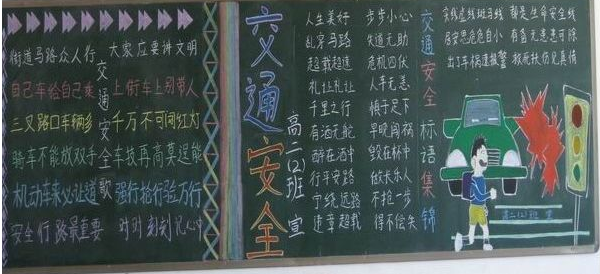 交通安全歌
街道马路众人行 大家应要讲文明
自己车给自己乘 上街车上别带人
三叉路口车辆多 千万不可闯红灯
骑车不能放双手 车技再高莫逞能
机动车来必让道 强行抢行弱万行
安全行路最重要 时时刻刻记心中
交通安全
高二(2)班 宣
人生美好 步步小心
乱穿马路 失道无助
超载超速 危机四伏
礼让礼让 人车无恙
千里之行 慎于足下
有酒无舵 早晚闯祸
醉在酒中 毁在杯中
行平安路 做长乐人
宁绕远路 不抢一步
违章超载 得不偿失
交通安全标语集锦
实线虚线斑马线 都是生命安全线
居安思危危自小 有备无患患可除
出了车祸速报警 救死扶伤见真情
高二(2)班 宣